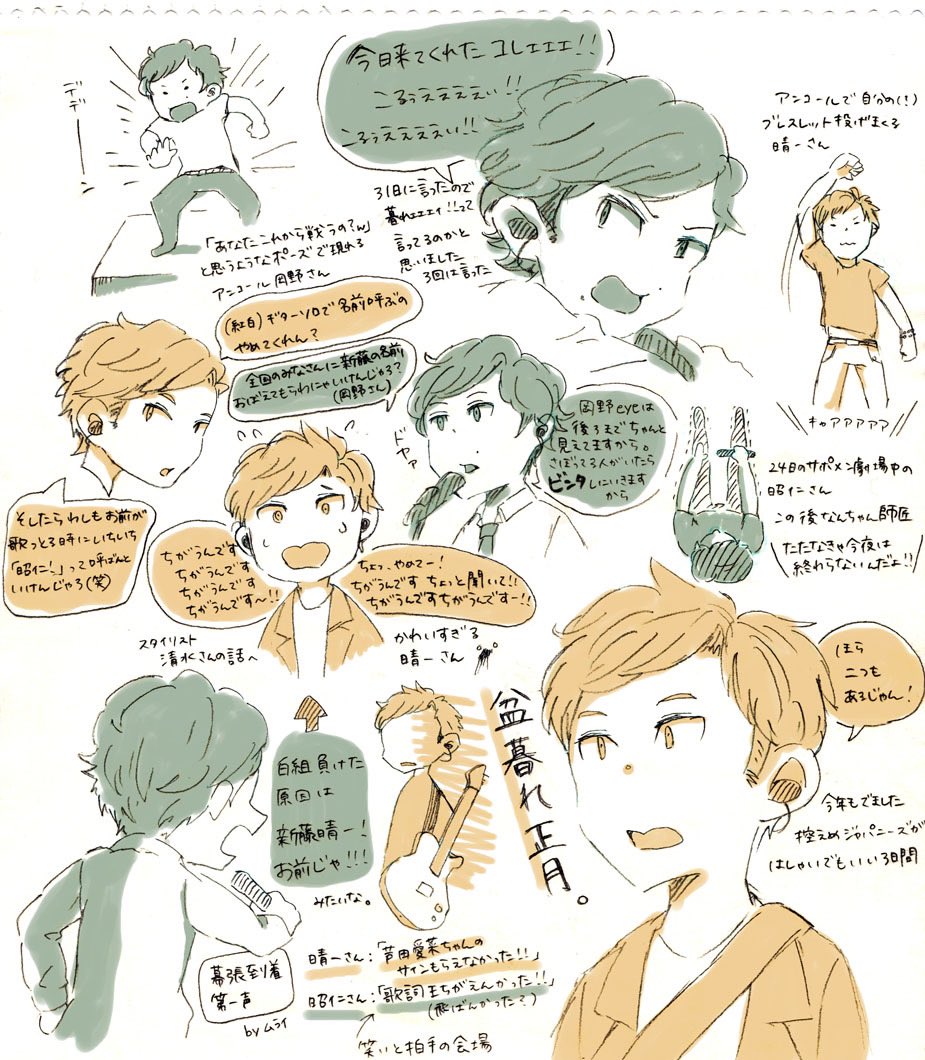 デデーーン
今日来てくれたコレェェェ!!
こるぅええええぃ!!
こるぅええええぃ!!
31日に言ったので
暮れェェェィ!!って
言ってるのかと
思いました
3回は言った
アンコールで自分の(!)
ブレスレット投げまくる
晴一さん
キャアアアアア
「あなたこれから戦うの?w」
と思うようなポーズで現れる
アンコール岡野さん
(紅白)ギターソロで名前呼ぶの
やめてくれん?
全国のみなさんに新藤の名前
おぼえてもらわにゃいけんじゃろ?
(岡野さん)
ドヤァ
岡野eyeは
後ろまでちゃんと
見えてますから。
さぼってる人がいたら
ビンタしにいきます
から
そしたらわしもお前が
歌っとる時にいちいち
「昭仁!」って呼ばんと
いけんじゃろ(笑)
ちがうんです
ちがうんです
ちがうんです
ちがうんです〜!!
ちょ、やめてー!
ちがうんです ちょっと聞いて!!
ちがうんですちがうんですー!!
スタイリスト
清水さんの話へ
かわいすぎる
晴一さん
24日のサポメン劇場中の
昭仁さん
この後なんちゃん師匠
たたなきゃ今夜は
終わらないんだよ!!
ほら
二つも
あるじゃん!
白組負けた
原因は
新藤晴一!
お前じゃ!!!
みたいな。
盆暮れ正月。
今年もでました
控えめジャパニーズが
はしゃいでもいい3日間
幕張到着
第一声
by ムライ
晴一さん:「芦田愛菜ちゃんの
サインもらえなかった!!」
昭仁さん:「歌詞まちがえんかった!!」
(飛ばんかった?)
笑いと拍手の会場